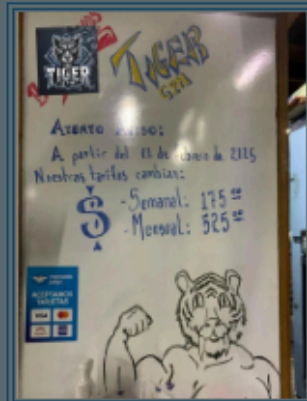 TIGER
TIGER
GYM
ATENTO AVISO:
A partir del de Febrero de 2025
Nuestras tarifas cambian:
$
- Semanal: 175⁰⁰
- Mensual: 525⁰⁰
ACEPTAMOS
TARJETAS
VISA